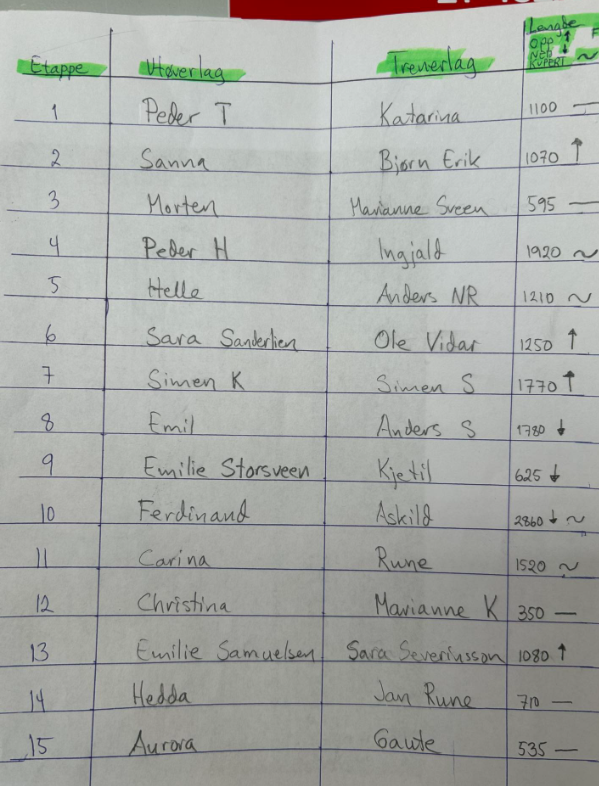 Etappe Utøverlag Trenerlag Lengde
Opp ↑ F
Ned ↓
Kupert ~
1 Peder T Katarina 1100 —
2 Sanna Bjørn Erik 1070 ↑
3 Morten Marianne Sveen 595 —
4 Peder H Ingjald 1920 ~
5 Helle Anders NR 1210 ~
6 Sara Sanderlien Ole Vidar 1250 ↑
7 Simen K Simen S 1770 ↑
8 Emil Anders S 1780 ↓
9 Emilie Storsveen Kjetil 625 ↓
10 Ferdinand Askild 2860 ↓ ~
11 Carina Rune 1520 ~
12 Christina Marianne K 350 —
13 Emilie Samuelsen Sara Severinsson 1080 ↑
14 Hedda Jan Rune 710 —
15 Aurora Gaute 535 —